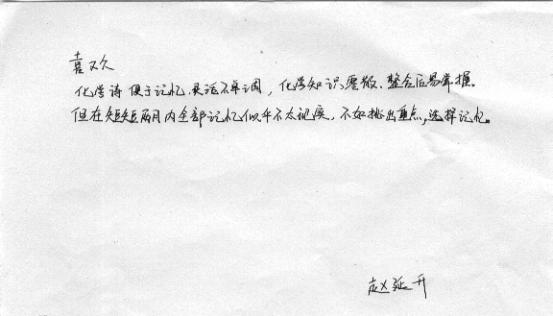 喜欢
化学诗便于记忆,灵活不单调,化学知识零散、整合后易掌握。
但在短短两月内全部记忆似乎不太现实,不如挑出重点,选择记忆。
赵延升